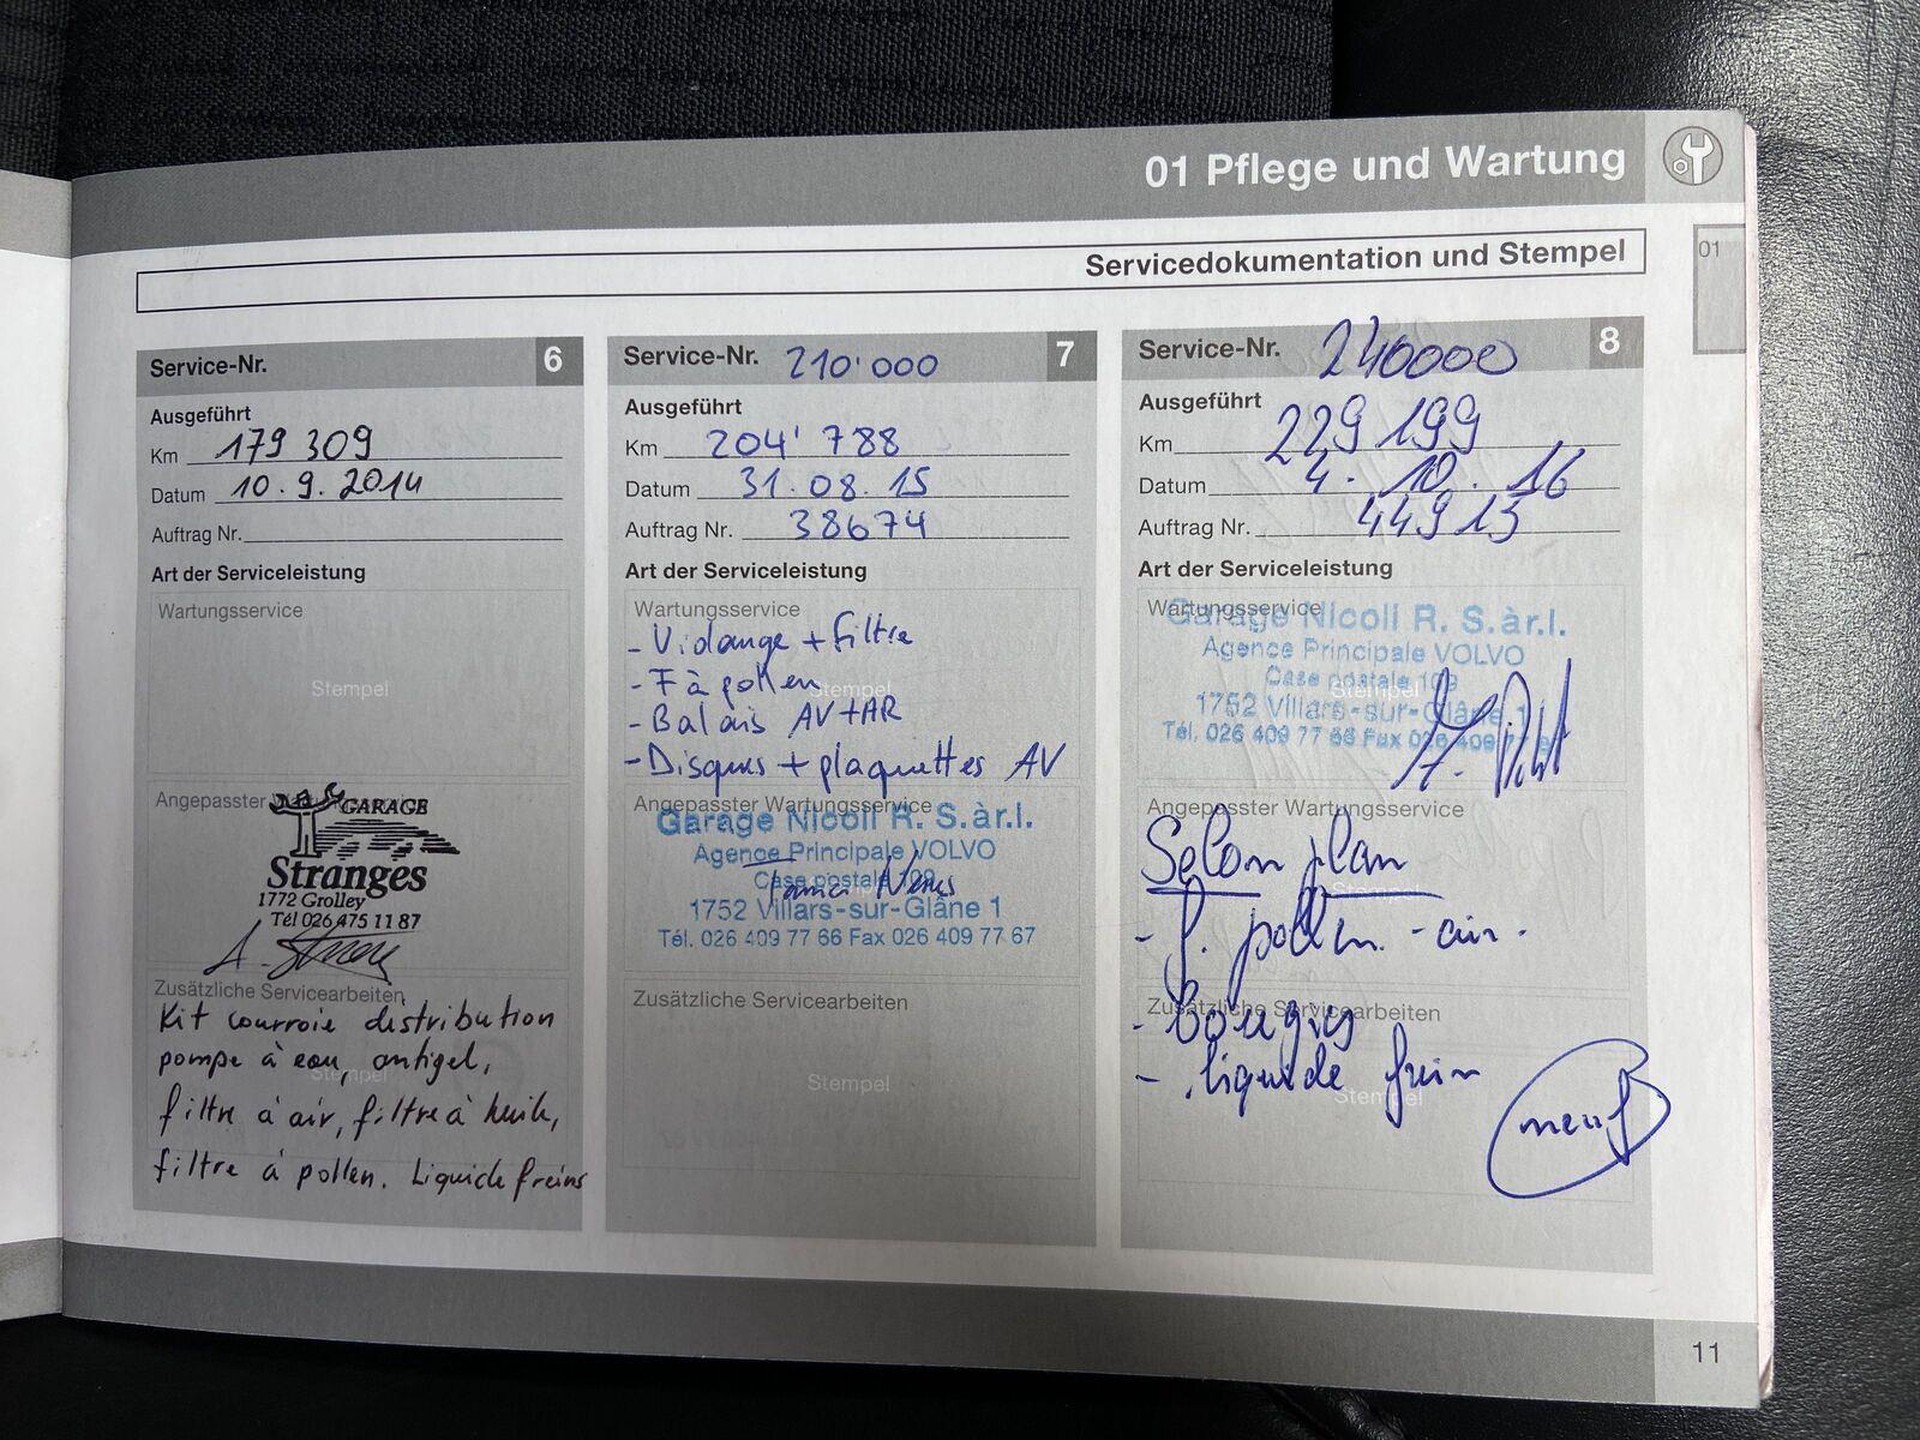 01 Pflege und Wartung
Servicedokumentation und Stempel
01
Service-Nr. 6
Ausgeführt
Km 179 309
Datum 10.9.2014
Auftrag Nr.
Art der Serviceleistung
Wartungsservice
Stempel
Angepasster
GARAGE
Stranges
1772 Grolley
Tél 026 475 11 87
Zusätzliche Servicearbeiten
Kit courroie distribution
pompe à eau, antigel,
Stempel
filtre à air, filtre à huile,
filtre à pollen. Liquide freins
Service-Nr. 210'000 7
Ausgeführt
Km 204'788
Datum 31.08.15
Auftrag Nr. 38674
Art der Serviceleistung
Wartungsservice
- Vidange + filtre
- F à pollen
Stempel
- Balais AV+AR
- Disques + plaquettes AV
Angepasster Wartungsservice
Garage Nicoli R. S.àr.l.
Agence Principale VOLVO
Case postale 109
1752 Villars-sur-Glâne 1
Tél. 026 409 77 66 Fax 026 409 77 67
Zusätzliche Servicearbeiten
Stempel
Service-Nr. 240000 8
Ausgeführt
Km 229 199
Datum 4.10.16
Auftrag Nr. 44913
Art der Serviceleistung
Wartungsservice
Garage Nicoli R. S.àr.l.
Agence Principale VOLVO
Case postale 109
Stempel
1752 Villars-sur-Glâne 1
Tél. 026 409 77 66 Fax 026 409
Angepasster Wartungsservice
Selon plan
Stempel
- f. pollen - air.
Zusätzliche Servicearbeiten
- bougies
- liquide frein
Stempel
neuf
11